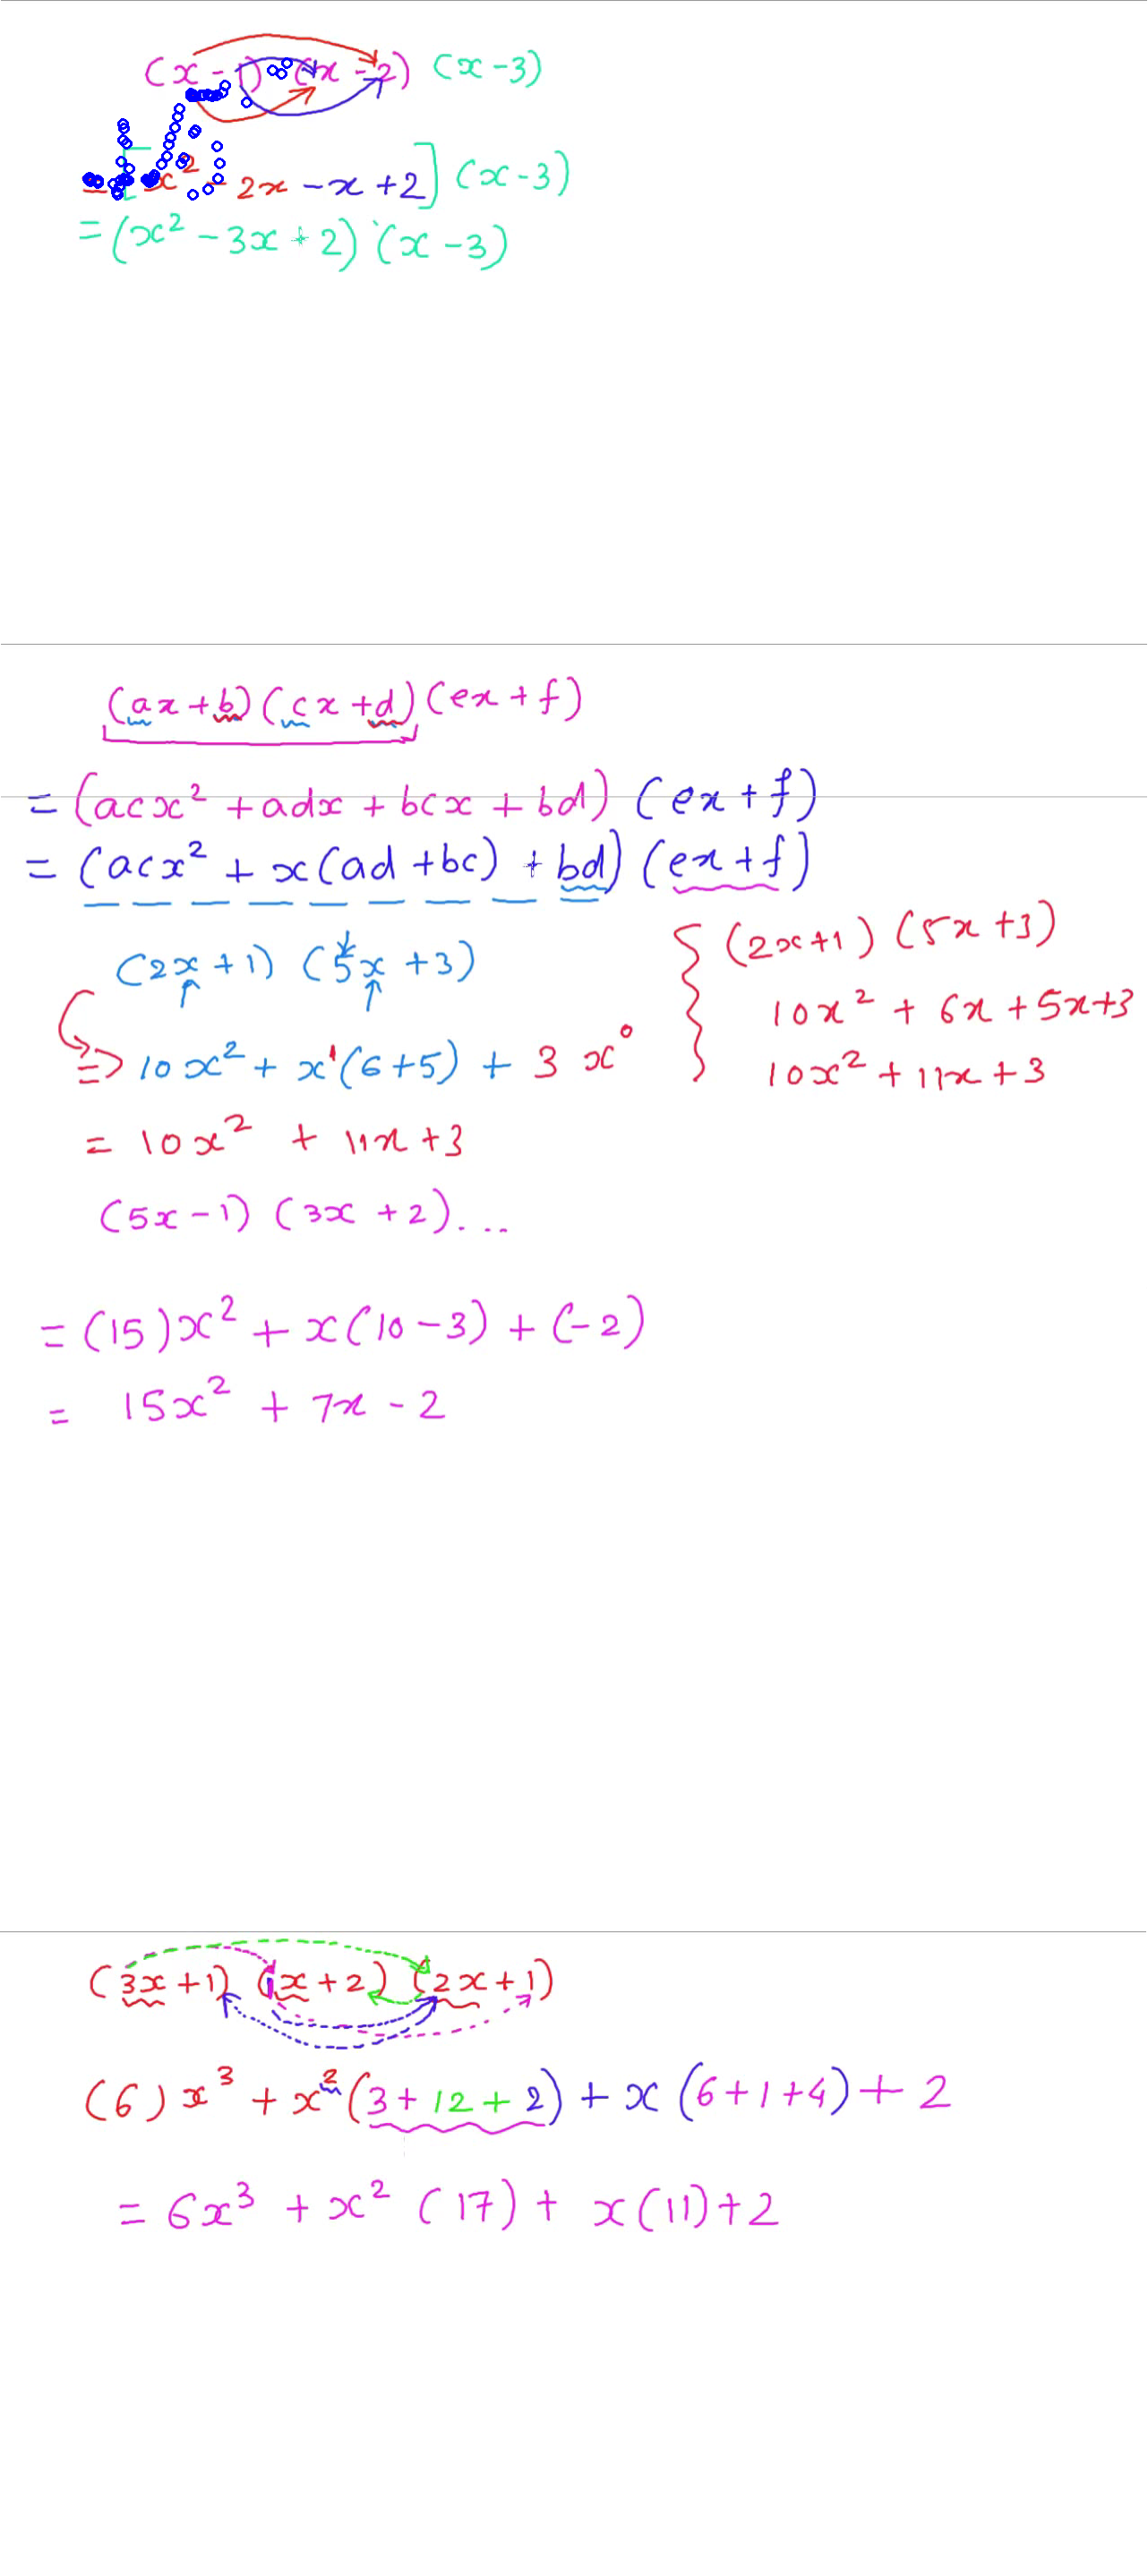 (x - 1) (x - 2) (x - 3)
= [x² - 2x - x + 2] (x - 3)
= (x² - 3x + 2) (x - 3)
(ax + b) (cx + d) (ex + f)
= (acx² + adx + bcx + bd) (ex + f)
= (acx² + x(ad + bc) + bd) (ex + f)
(2x + 1) (5x + 3)
=> 10x² + x¹(6 + 5) + 3 x⁰
= 10x² + 11x + 3
{ (2x+1) (5x + 3)
10x² + 6x + 5x+3
10x² + 11x + 3
(5x - 1) (3x + 2)...
= (15)x² + x(10 - 3) + (-2)
= 15x² + 7x - 2
(3x + 1) (x + 2) (2x + 1)
(6)x³ + x²(3 + 12 + 2) + x(6+1+4) + 2
= 6x³ + x² (17) + x(11) + 2